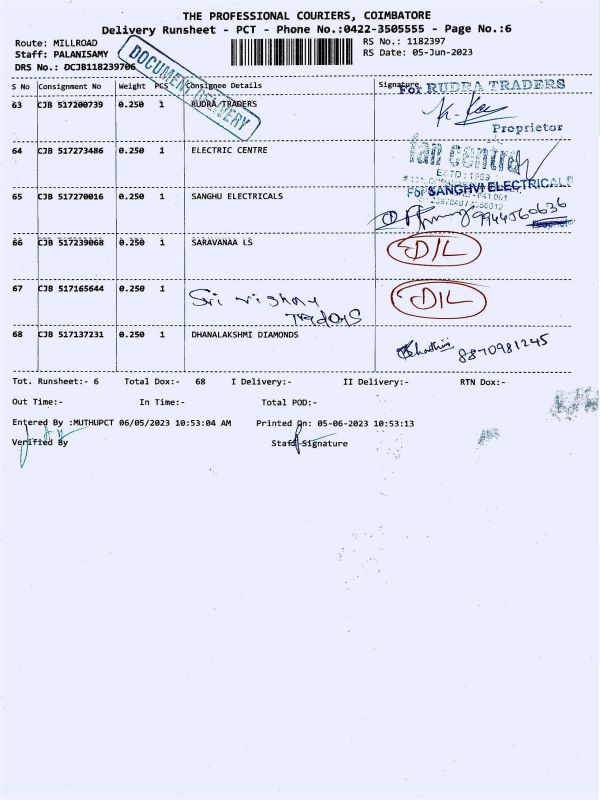 THE PROFESSIONAL COURIERS, COIMBATORE
Delivery Runsheet - PCT - Phone No.:0422-3505555 - Page No.:6
Route: MILLROAD
RS No.: 1182397
Staff: PALANISAMY
RS Date: 05-Jun-2023
DRS No.: DCJB118239706
DOCUMENT DELIVERY
S No Consignment No Weight PCS Consignee Details Signature
For RUDRA TRADERS
63 CJB 517200739 0.250 1 RUDRA TRADERS
Proprietor
64 CJB 517273486 0.250 1 ELECTRIC CENTRE
fan centre
ESTD: 1989
65 CJB 517270016 0.250 1 SANGHU ELECTRICALS
For SANGHVI ELECTRICALS
9944060636
66 CJB 517239068 0.250 1 SARAVANAA LS
D/L
67 CJB 517165644 0.250 1 Sri vishnu
Tradors
D/L
68 CJB 517137231 0.250 1 DHANALAKSHMI DIAMONDS
8870981245
Tot. Runsheet:- 6 Total Dox:- 68 I Delivery:- II Delivery:- RTN Dox:-
Out Time:- In Time:- Total POD:-
Entered By :MUTHUPCT 06/05/2023 10:53:04 AM Printed On: 05-06-2023 10:53:13
Verified By Staff Signature